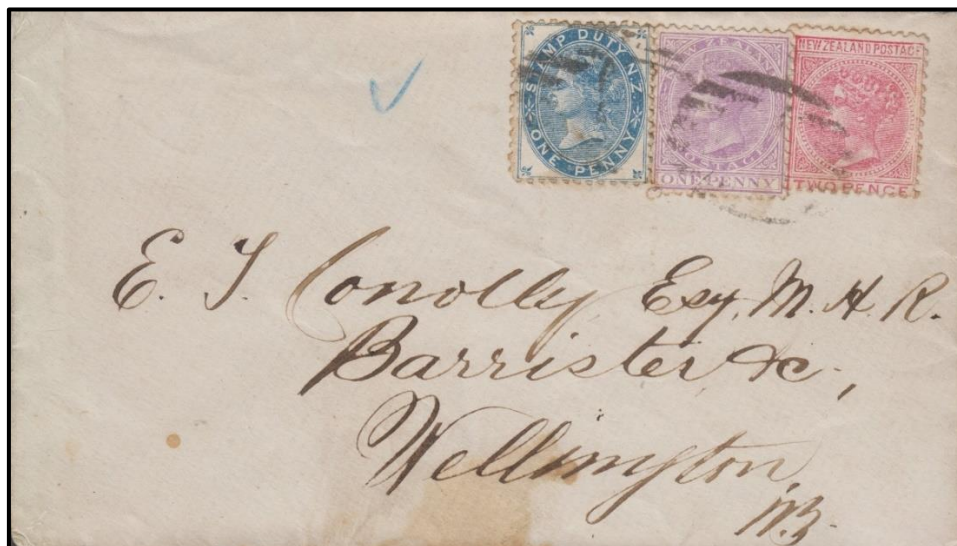 STAMP DUTY N.Z.
ONE PENNY
NEW ZEALAND
POSTAGE
ONE PENNY
NEW ZEALAND POSTAGE
TWO PENCE
E. T. Conolly Esq. M. H. R.
Barrister &c.,
Wellington,
N.Z.